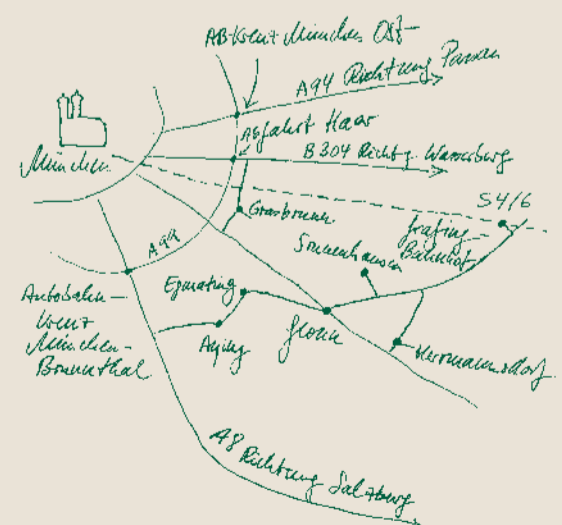 AB-Kreuz München Ost
A94 Richtung Passau
Abfahrt Haar
B304 Richtg. Wasserburg
München
S4/6
Grafing-
Bahnhof
Grasbrunn
Sonnenhausen
A99
Egmating
Autobahn-
kreuz
München-
Brunnthal
Aying
Glonn
Herrmannsdorf
A8 Richtung Salzburg